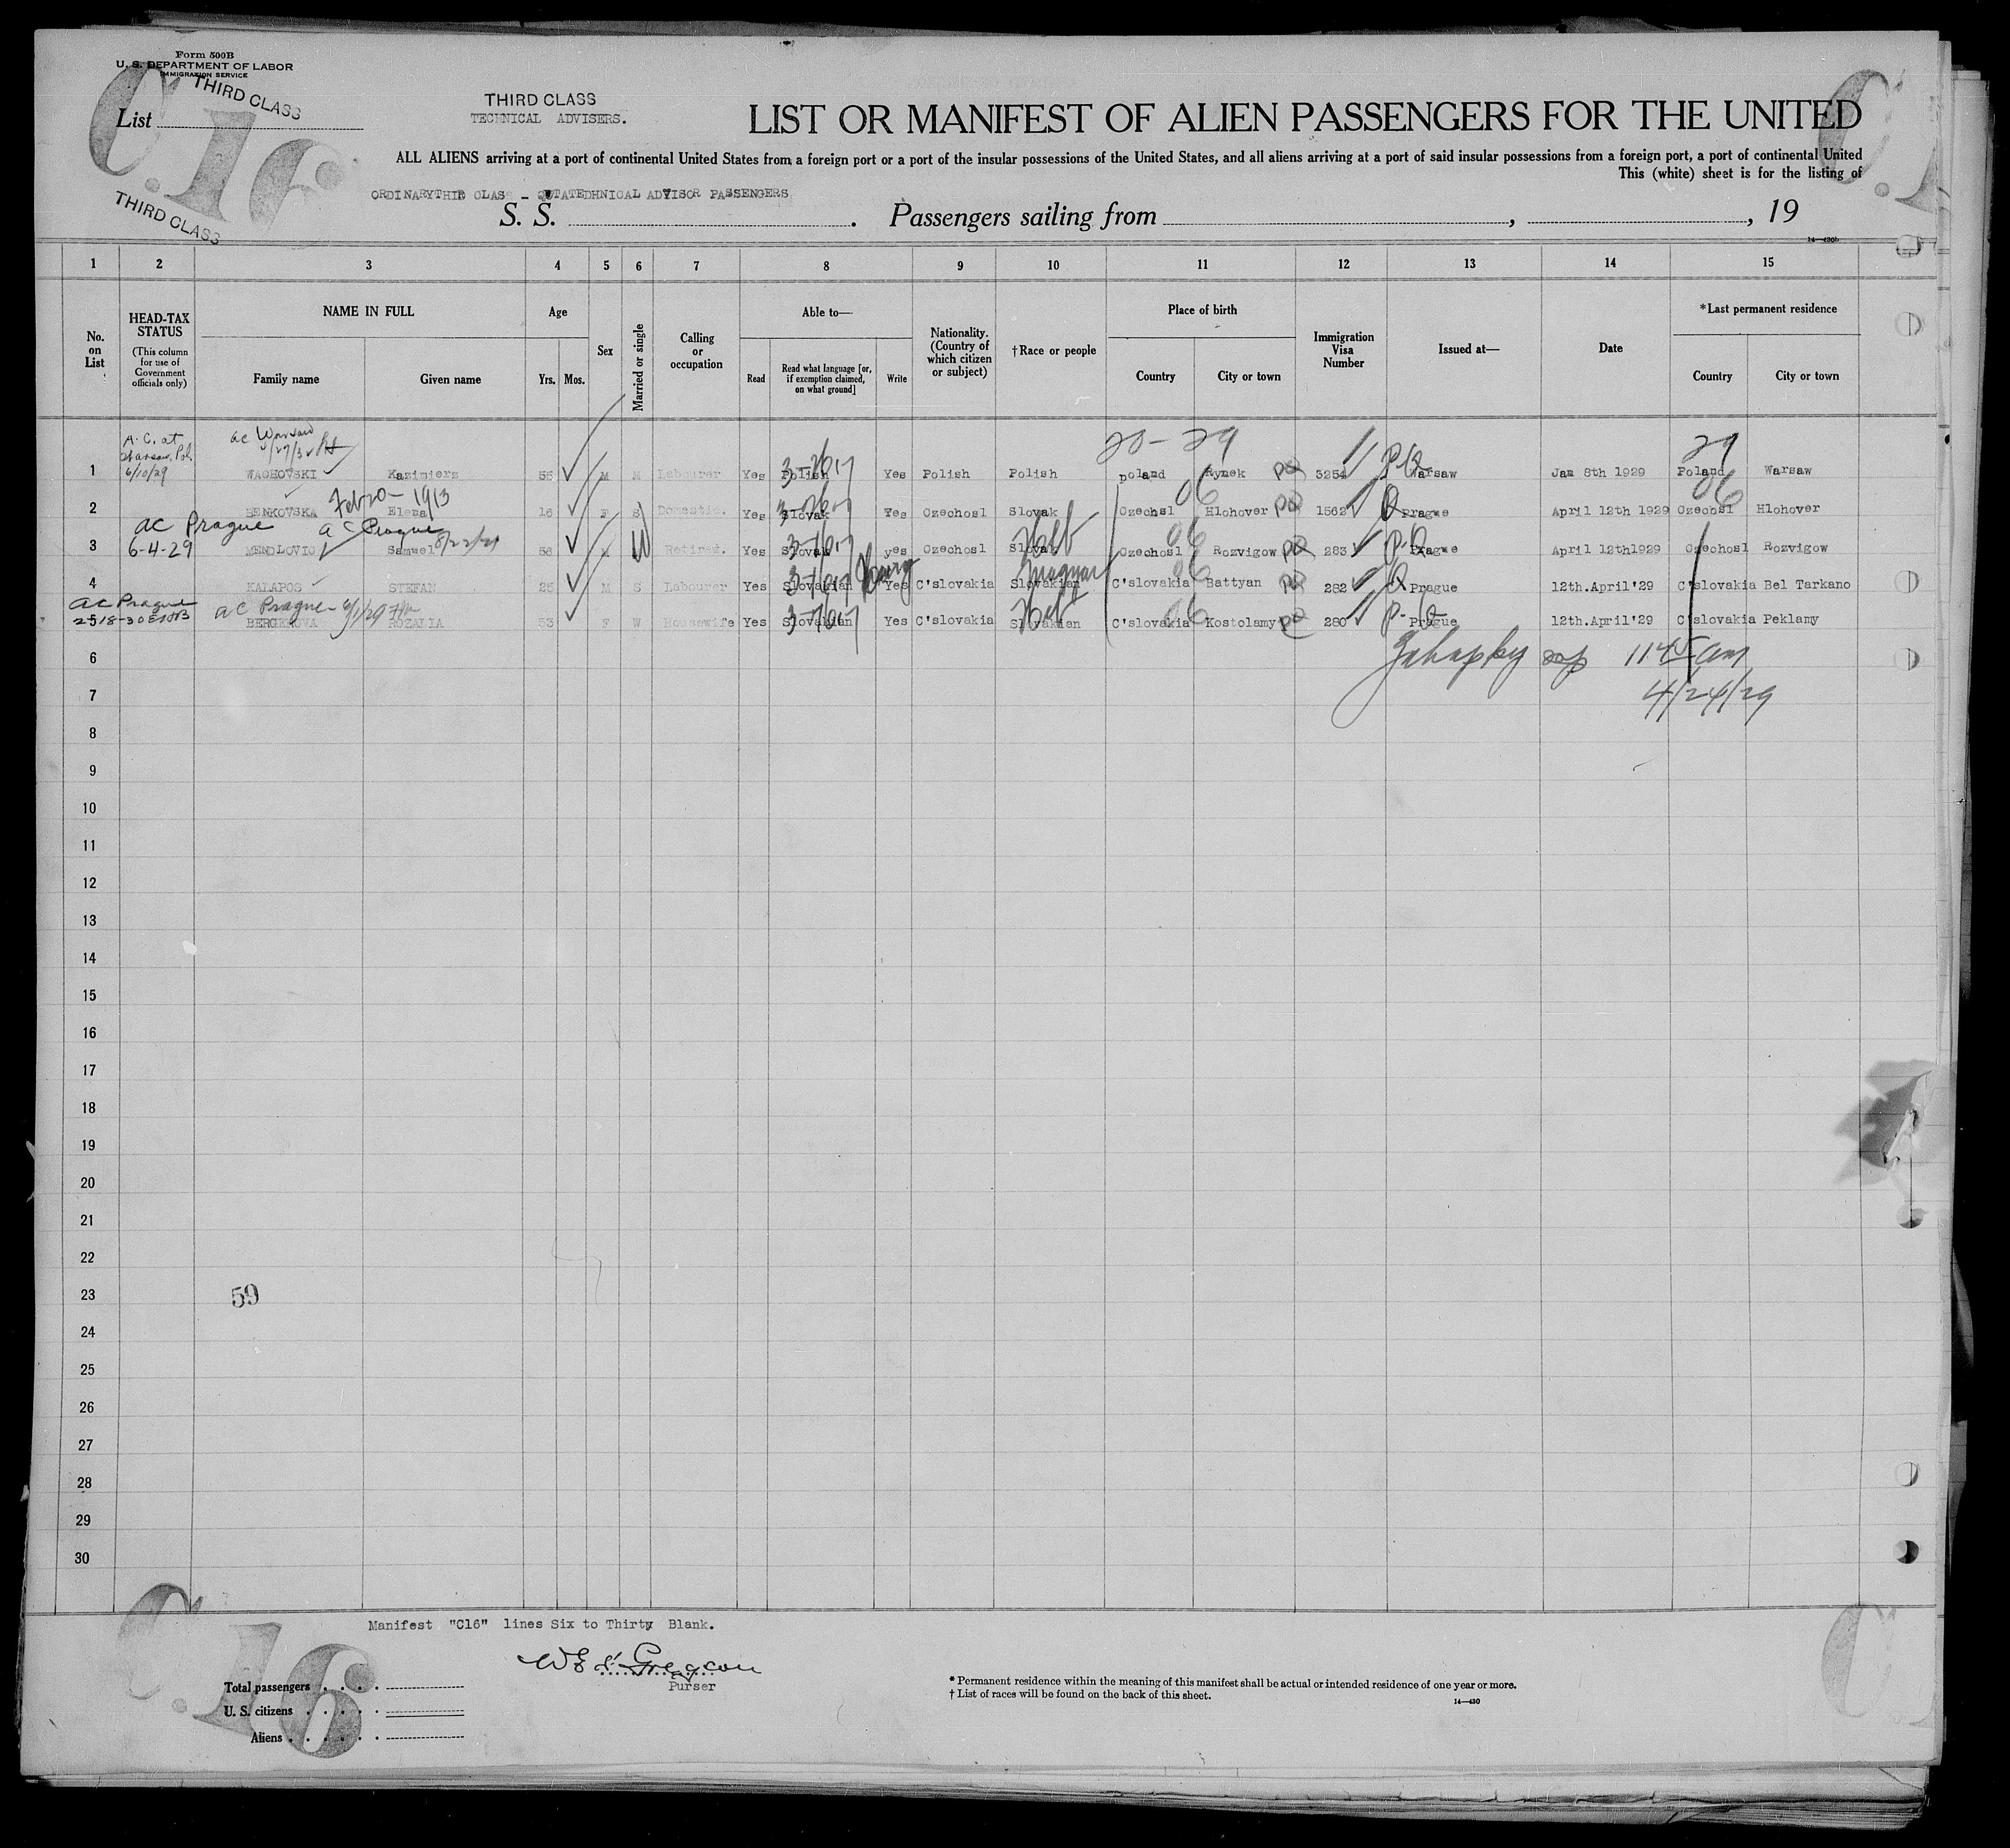 Form 500B
U. S. DEPARTMENT OF LABOR
IMMIGRATION SERVICE
THIRD CLASS
C.16
List
THIRD CLASS
THIRD CLASS
TECHNICAL ADVISERS.
LIST OR MANIFEST OF ALIEN PASSENGERS FOR THE UNITED
ALL ALIENS arriving at a port of continental United States from a foreign port or a port of the insular possessions of the United States, and all aliens arriving at a port of said insular possessions from a foreign port, a port of continental United
This (white) sheet is for the listing of
ADVISOR PASSENGERS
S. S. . Passengers sailing from , , 19
14—430b
1 2 3 4 5 6 7 8 9 10 11 12 13 14 15
No. on List
HEAD-TAX STATUS
(This column for use of Government officials only)
NAME IN FULL
Family name Given name
Age
Yrs. Mos.
Sex
Married or single
Calling or occupation
Able to—
Read
Read what language [or, if exemption claimed, on what ground]
Write
Nationality. (Country of which citizen or subject)
†Race or people
Place of birth
Country City or town
Immigration Visa Number
Issued at—
Date
*Last permanent residence
Country City or town
A. C. at Warsaw, Pol. 6/10/29
ac Warsaw
20 - 29 29
1 WACHOVSKI Kazimierz 55 M M Labourer Yes Polish Yes Polish Polish Poland Rynek PQ 3254 Warsaw Jan 8th 1929 Poland Warsaw
Feb 20 - 1913 06 06
2 BENKOVSKA Elena 16 F S Domestic. Yes Slovak Yes Czechosl Slovak Czechosl Hlohover PQ 1562 Prague April 12th 1929 Czechosl Hlohover
ac Prague 6-4-29
a c Prague 8/22/29
3 MENDLOVIC Samuel 58 M W Retired. Yes Slovak yes Czechosl Slovak Heb Czechosl 06 Rozvigow PQ 283 Prague April 12th1929 Czechosl Rozvigow
4 KALAPOS STEFAN 25 M S Labourer Yes Slovakian Yes C'slovakia Slovakian Magyar C'slovakia 06 Battyan PQ 282 Prague 12th.April'29 C'slovakia Bel Tarkano
ac Prague
ac Prague - 6/1/29
5 BERGEROVA ROZALIA 53 F W Housewife Yes Slovakian Yes C'slovakia Slovakian Heb C'slovakia 06 Kostolamy PQ 280 Prague 12th.April'29 C'slovakia Peklamy
6 1145 am
7 4/24/29
8
9
10
11
12
13
14
15
16
17
18
19
20
21
22
23 59
24
25
26
27
28
29
30
Manifest "C16" lines Six to Thirty Blank.
Purser
C.16
Total passengers
U. S. citizens
Aliens
* Permanent residence within the meaning of this manifest shall be actual or intended residence of one year or more.
† List of races will be found on the back of this sheet.
14—430